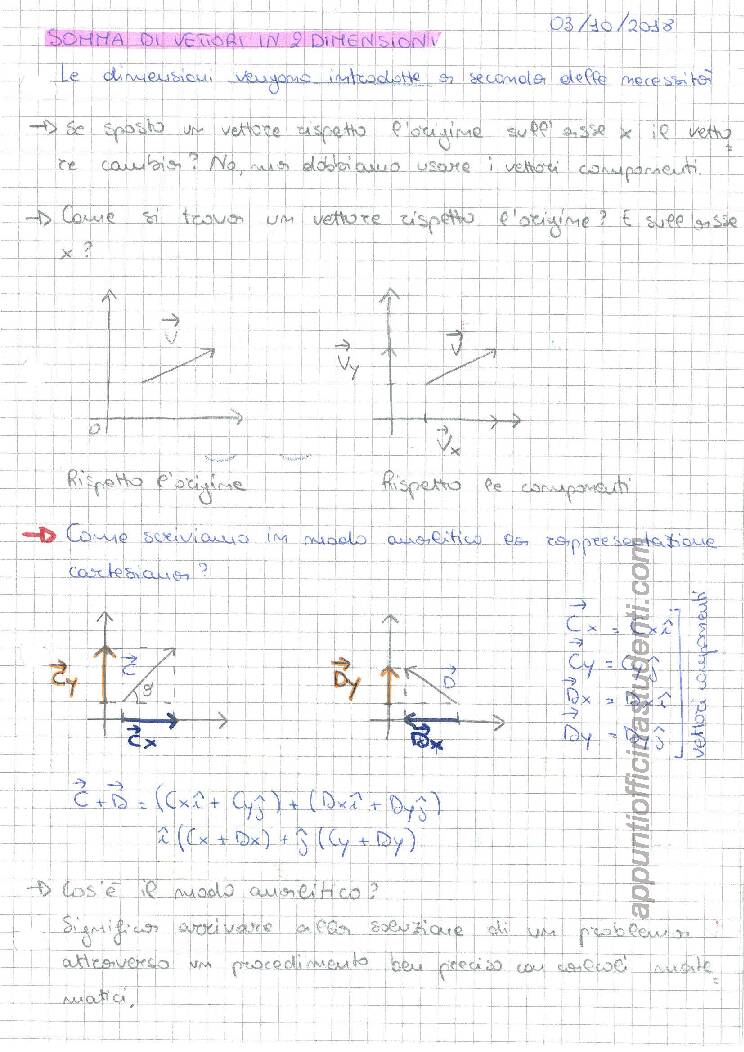 03/10/2018
SOMMA DI VETTORI IN 2 DIMENSIONI
Le dimensioni vengono introdotte a seconda delle necessità
→ Se sposto un vettore rispetto l'origine sull'asse x il vetto=
re cambia? No, ma dobbiamo usare i vettori componenti.
→ Come si trova un vettore rispetto l'origine? E sull'asse
x?
V⃗
O
V⃗y
V⃗
V⃗x
Rispetto l'origine
Rispetto le componenti
→ Come scriviamo in modo analitico la rappresentazione
cartesiana?
C⃗y
C⃗
C⃗x
D⃗y
D⃗
D⃗x
C⃗x = Cxî
C⃗y = Cyĵ
D⃗x = Dxî
D⃗y = Dyĵ
vettori componenti
C⃗ + D⃗ = (Cxî + Cyĵ) + (Dxî + Dyĵ)
î(Cx + Dx) + ĵ(Cy + Dy)
→ Cos'è il modo analitico?
Significa arrivare alla soluzione di un problema
attraverso un procedimento ben preciso con calcoli mate=
matici.
appuntiofficinastudenti.com